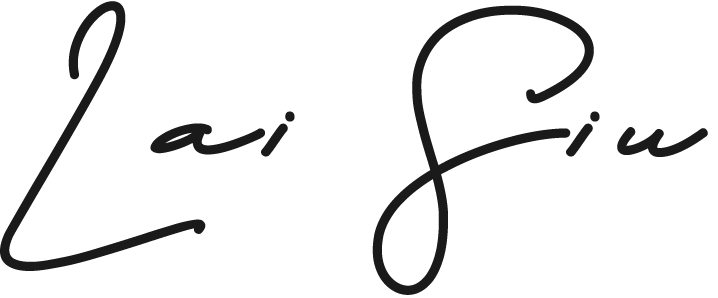 Lai Siu